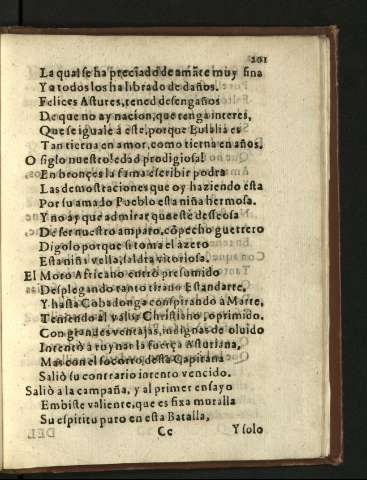 201
La qual se ha preciado de amãte muy fina
Y a todos los ha librado de daños.
Felices Astures, tened desengaños
De que no ay nacion, que tenga interes,
Que se iguale à este, porque Eulalia es
Tan tierna en amor, como tierna en años.
O siglo nuestro! edad prodigiosa!
En bronçes la fama escribir podra
Las demostraciones que oy haziendo esta
Por su amado Pueblo esta niña hermosa.
Y no ay que admirar que esté desseosa
De ser nuestro amparo, cõ pecho guerrero
Digolo porque si toma el azero
Esta niña vella, saldra vitoriosa.
El Moro Africano entrò presumido
Desplegando tanto tirano Estandarte,
Y hasta Cobadonga conspirando à Marte,
Teniendo al valor Christiano, oprimido.
Con grandes ventajas, indignas de oluido
Intentò a ruynar la fuerça Asturiana,
Mas con el socorro desta Capitana
Saliò su contrario intento vencido.
Saliò a la campaña, y al primer ensayo
Embiste valiente, que es fixa muralla
Su espiritu puro en esta Batalla,
Cc Y solo